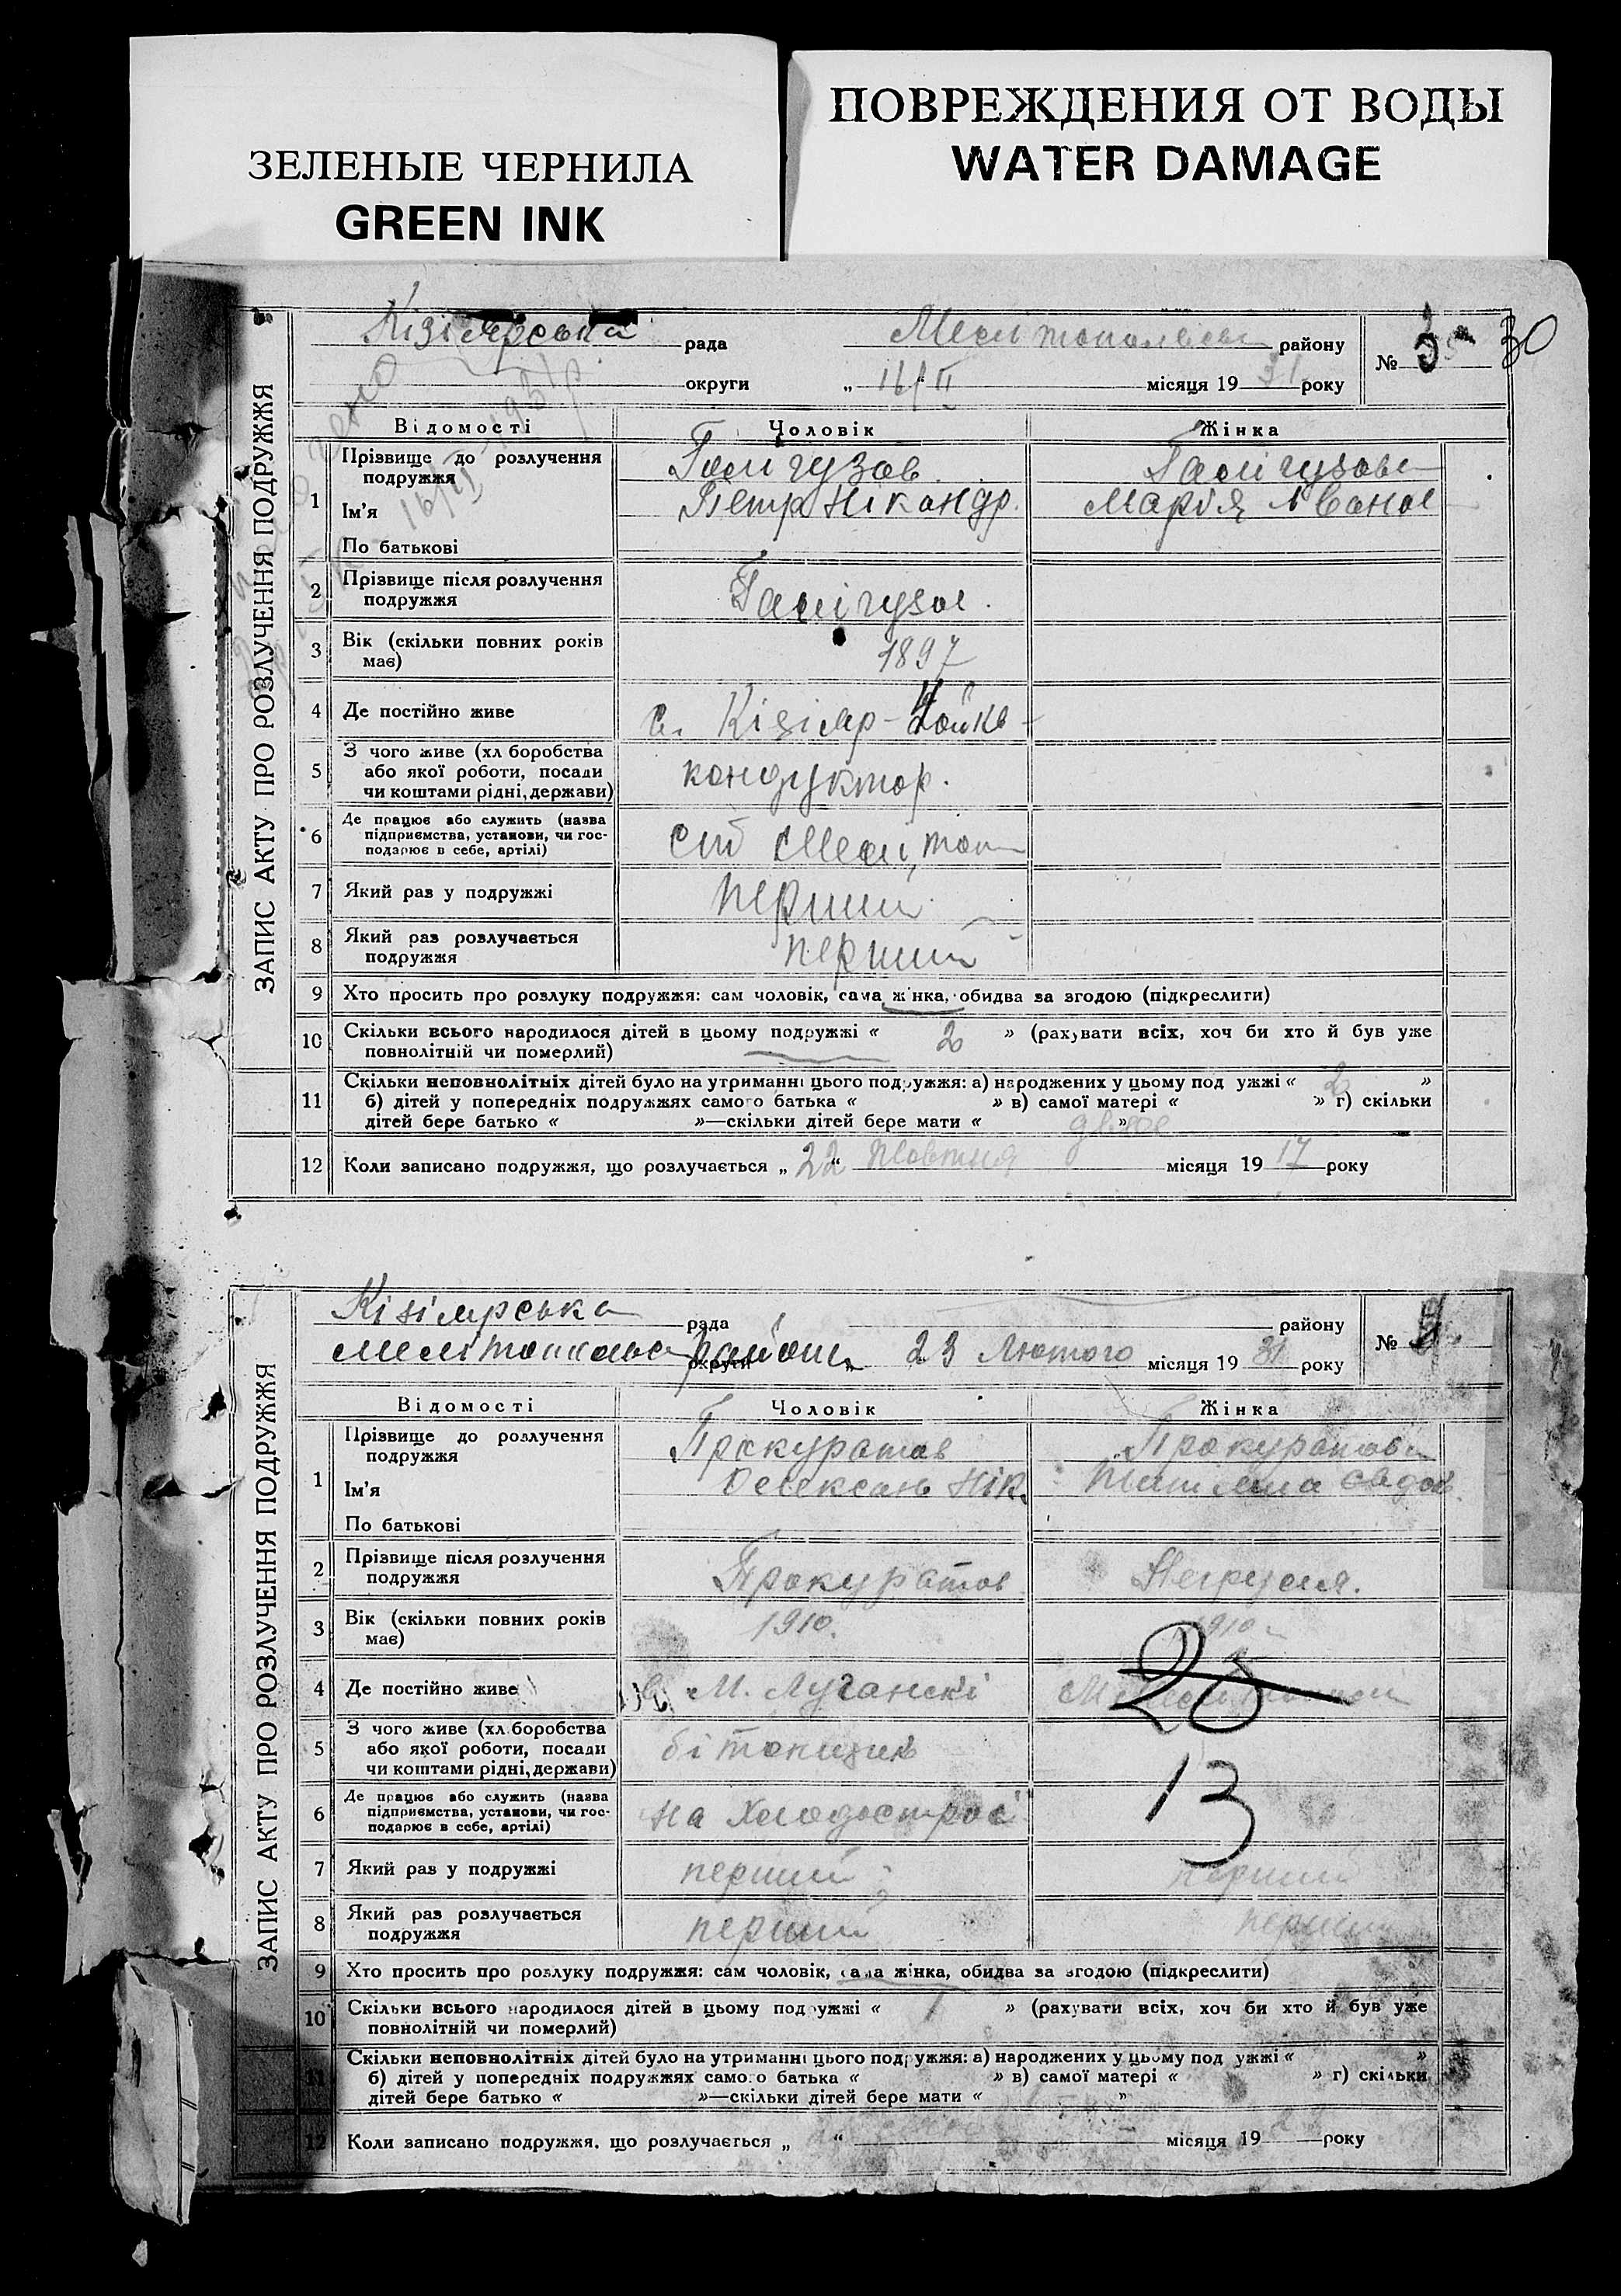 ЗЕЛЕНЫЕ ЧЕРНИЛА
GREEN INK
ПОВРЕЖДЕНИЯ ОТ ВОДЫ
WATER DAMAGE
ЗАПИС АКТУ ПРО РОЗЛУЧЕННЯ ПОДРУЖЖЯ
Кізіярська рада району № 30
округи „ 16/II місяця 19 31 року
Відомості Чоловік Жінка
1 Прізвище до розлучення подружжя Галігузов Галігузова
Ім'я Петр Нікандр. Марія Іванов
По батькові
2 Прізвище після розлучення
подружжя Галігузов.
3 Вік (скільки повних років
має) 1897
4 Де постійно живе с. Кізіяр
5 З чого живе (хл боробства
або якої роботи, посади
чи коштами рідні, держави) кондуктор.
6 Де працює або служить (назва
підприємства, установи, чи гос-
подарює в себе, артілі) ст
7 Який раз у подружжі перший
8 Який раз розлучається
подружжя перший
9 Хто просить про розлуку подружжя: сам чоловік, сама жінка, обидва за згодою (підкреслити)
10 Скільки всього народилося дітей в цьому подружжі « 2 » (рахувати всіх, хоч би хто й був уже
повнолітній чи померлий)
11 Скільки неповнолітніх дітей було на утриманні цього подружжя: а) народжених у цьому под ужжі « 2 »
б) дітей у попередніх подружжях самого батька « » в) самої матері « » г) скільки
дітей бере батько « »—скільки дітей бере мати « двое »
12 Коли записано подружжя, що розлучається „ 22 “ Жовтня місяця 19 17 року
ЗАПИС АКТУ ПРО РОЗЛУЧЕННЯ ПОДРУЖЖЯ
Кізіярська рада району №
округи „ 23 Лютого місяця 19 31 року
Відомості Чоловік Жінка
1 Прізвище до розлучення
подружжя Прокуратов Прокуратова
Ім'я Олександ Нік. Татіяна Євдок.
По батькові
2 Прізвище після розлучення
подружжя Прокуратов
3 Вік (скільки повних років
має) 1910. 1910
4 Де постійно живе М. Луганскі
25
5 З чого живе (хл боробства
або якої роботи, посади
чи коштами рідні, держави) бітонщик
13
6 Де працює або служить (назва
підприємства, установи, чи гос-
подарює в себе, артілі) на Холодострої
7 Який раз у подружжі перший перший
8 Який раз розлучається
подружжя перший перший
9 Хто просить про розлуку подружжя: сам чоловік, сама жінка, обидва за згодою (підкреслити)
10 Скільки всього народилося дітей в цьому подружжі « 1 » (рахувати всіх, хоч би хто й був уже
повнолітній чи померлий)
11 Скільки неповнолітніх дітей було на утриманні цього подружжя: а) народжених у цьому под ужжі « »
б) дітей у попередніх подружжях самого батька « » в) самої матері « » г) скільки
дітей бере батько « »—скільки дітей бере мати « »
12 Коли записано подружжя, що розлучається „ “ місяця 19 року